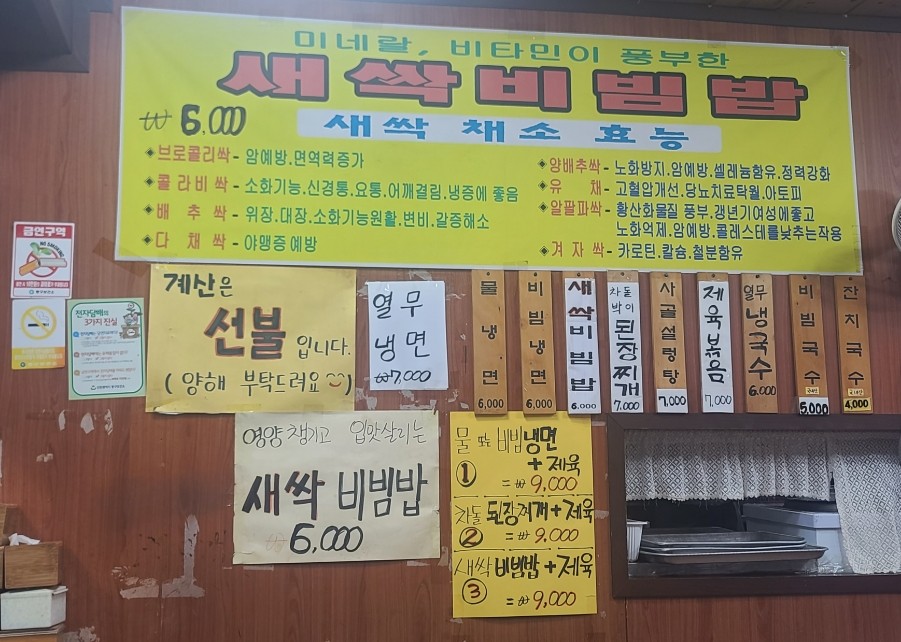 미네랄, 비타민이 풍부한
새싹비빔밥
₩ 6,000
새싹 채소 효능
◆브로콜리싹 - 암예방.면역력증가
◆콜라비싹 - 소화기능.신경통.요통.어깨결림.냉증에 좋음
◆배 추 싹 - 위장.대장.소화기능원활.변비.갈증해소
◆다 채 싹 - 야맹증예방
◆양배추싹 - 노화방지.암예방.셀레늄함유.정력강화
◆유 채 - 고혈압개선.당뇨치료탁월.아토피
◆알팔파싹 - 황산화물질 풍부.갱년기여성에좋고
노화억제.암예방.콜레스테롤낮추는작용
◆겨 자 싹 - 카로틴.칼슘.철분함유
금연구역
NO SMOKING
전자담배의
3가지 진실
계산은
선불 입니다.
( 양해 부탁드려요 )
열무
냉면
₩7,000
물냉면
6,000
비빔냉면
6,000
새싹비빔밥
6,000
차돌박이
된장찌개
7,000
사골설렁탕
7,000
제육볶음
7,000
열무
냉국수
6.000
비빔국수
5,000
잔치국수
4,000
영양 챙기고 입맛살리는
새싹 비빔밥
₩ 6,000
물 또는 비빔냉면
① + 제육
= ₩ 9,000
차돌 된장찌개 + 제육
② = ₩ 9,000
새싹 비빔밥 + 제육
③ = ₩ 9,000